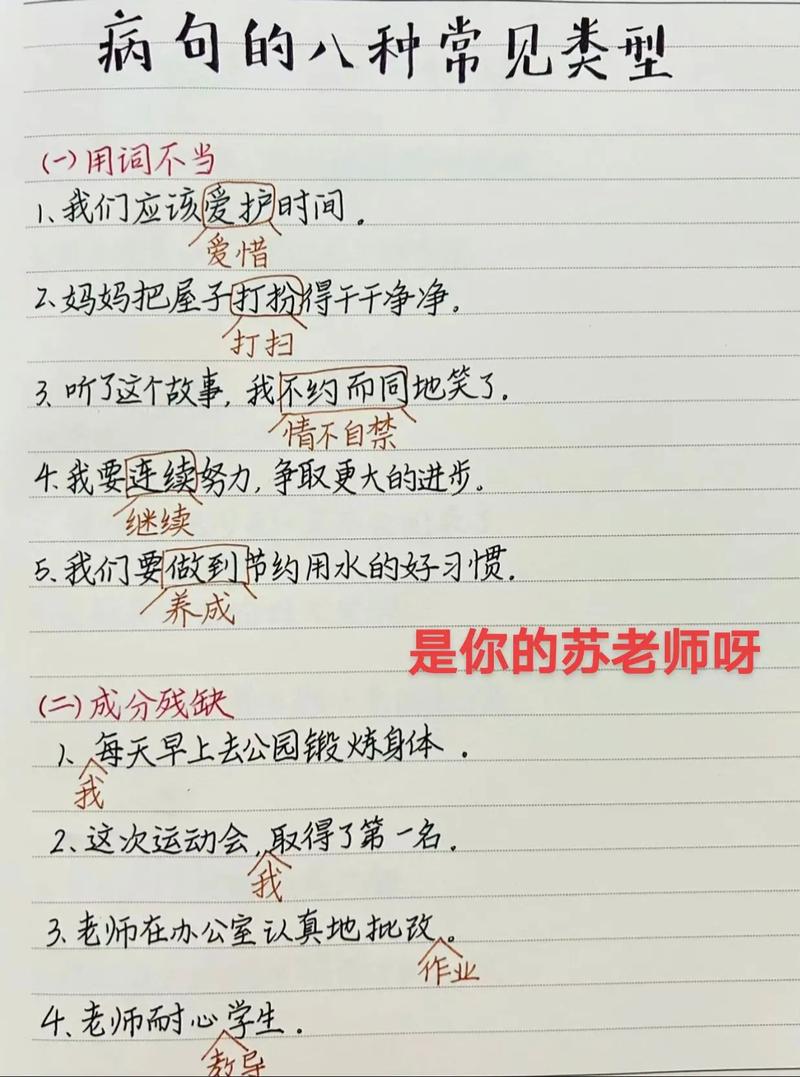 病句的八种常见类型
(一)用词不当
1、我们应该爱护时间。
爱惜
2、妈妈把屋子打扮得干干净净。
打扫
3、听了这个故事，我不约而同地笑了。
情不自禁
4、我要连续努力，争取更大的进步。
继续
5、我们要做到节约用水的好习惯。
养成
是你的苏老师呀
(二)成分残缺
1、每天早上去公园锻炼身体。
我
2、这次运动会，取得了第一名。
我
3、老师在办公室认真地批改。
作业
4、老师耐心学生。
教导